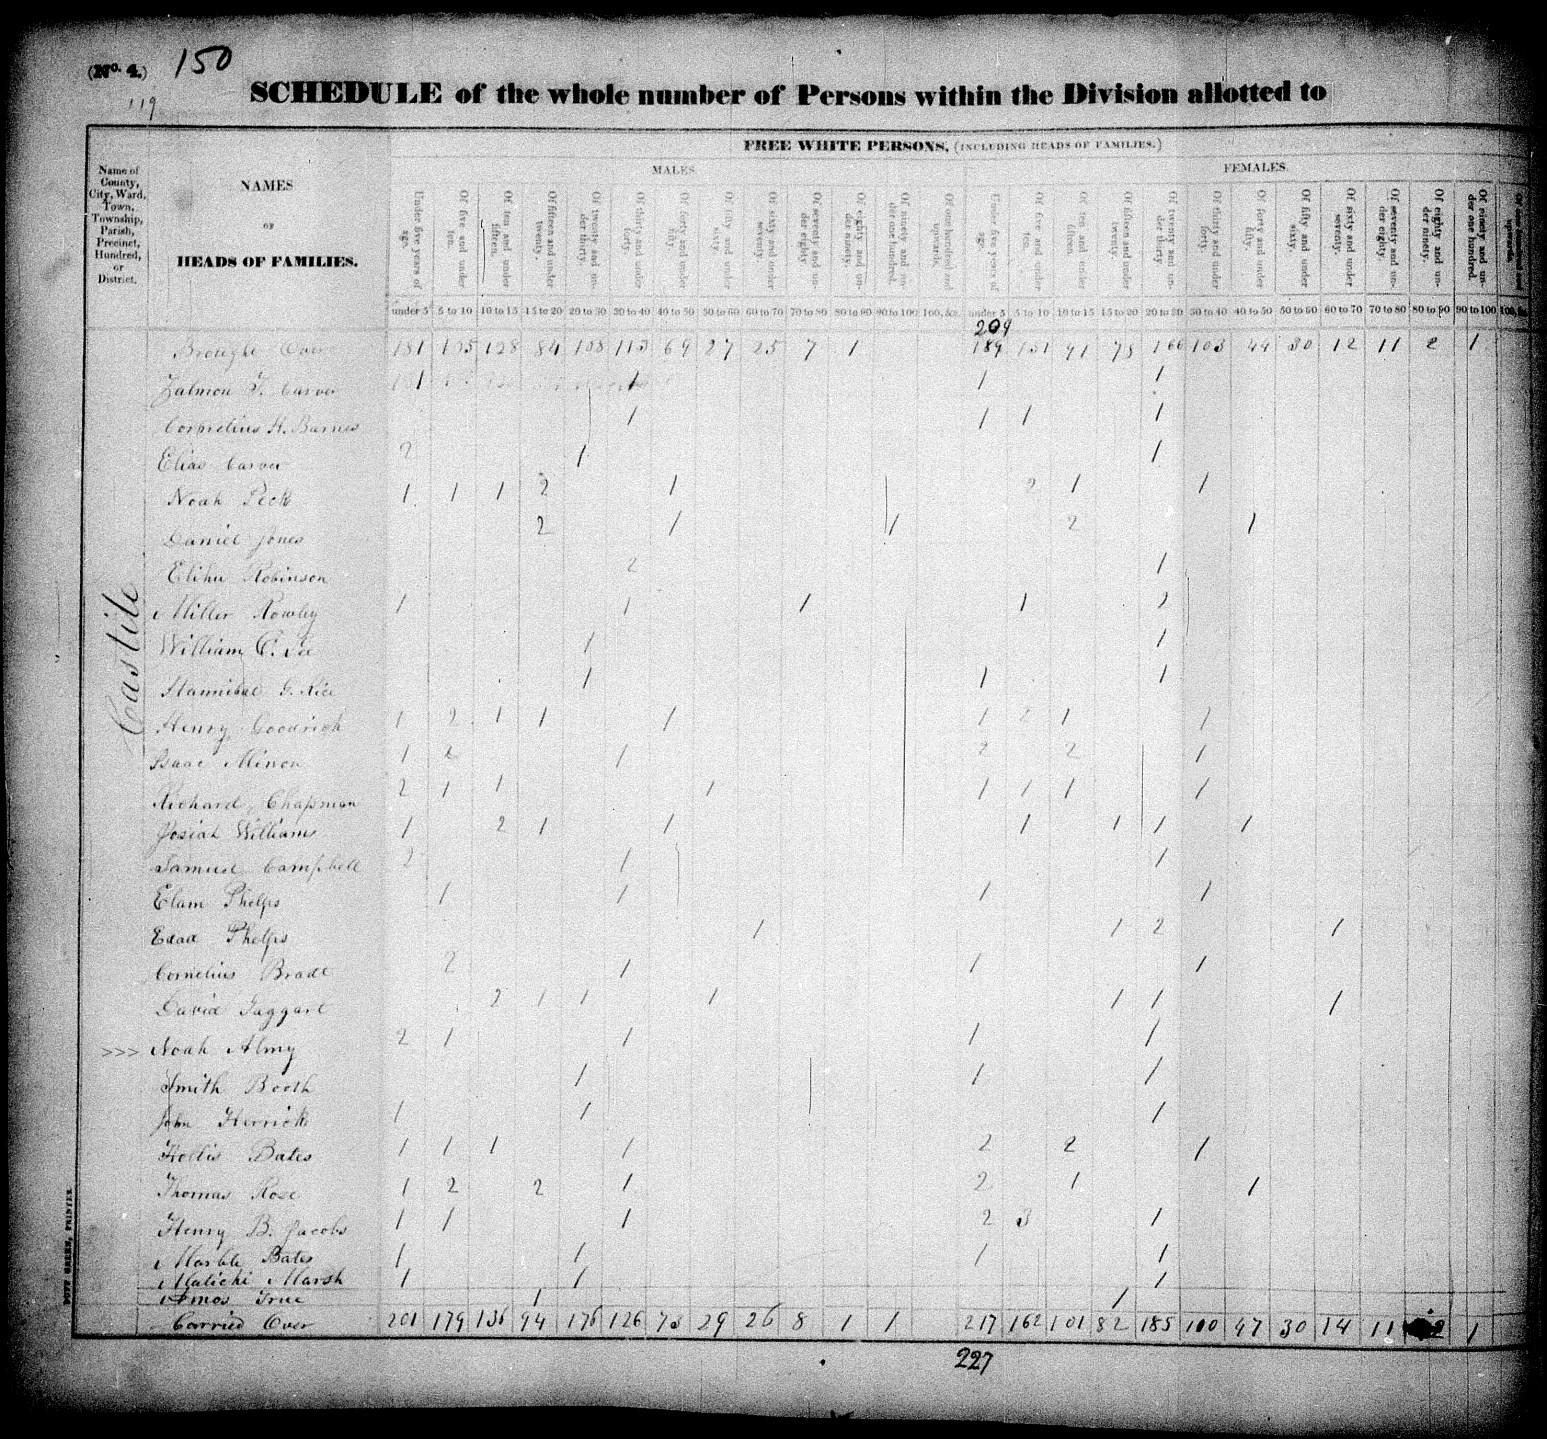 (No. 4.) 150
119
SCHEDULE of the whole number of Persons within the Division allotted to
FREE WHITE PERSONS, (INCLUDING HEADS OF FAMILIES.)
MALES. FEMALES.
Name of County, City, Ward, Town, Township, Parish, Precinct, Hundred, or District.
NAMES
OF
HEADS OF FAMILIES.
Under five years of age. Of five and under ten. Of ten and under fifteen. Of fifteen and under twenty. Of twenty and under thirty. Of thirty and under forty. Of forty and under fifty. Of fifty and under sixty. Of sixty and under seventy. Of seventy and under eighty. Of eighty and under ninety. Of ninety and under one hundred. Of one hundred and upwards. Under five years of age. Of five and under ten. Of ten and under fifteen. Of fifteen and under twenty. Of twenty and under thirty. Of thirty and under forty. Of forty and under fifty. Of fifty and under sixty. Of sixty and under seventy. Of seventy and under eighty. Of eighty and under ninety. Of ninety and under one hundred. Of one hundred and upwards.
under 5 5 to 10 10 to 15 15 to 20 20 to 30 30 to 40 40 to 50 50 to 60 60 to 70 70 to 80 80 to 90 90 to 100 100, &c. under 5 5 to 10 10 to 15 15 to 20 20 to 30 30 to 40 40 to 50 50 to 60 60 to 70 70 to 80 80 to 90 90 to 100 100, &c.
209
Brought Over 181 128 84 113 69 27 25 7 1 189 151 91 166 103 44 30 12 11 2 1
Castile
Zalmon T. Carver 1 1 1 1
H. Barnes 1 1 1 1
Elias Carver 2 1 1
Noah Peck 1 1 1 2 1 2 1 1
Daniel Jones 2 1 1 2 1
Elihu Robinson 2 1
Miller Rowley 1 1 1 1 2
William C. 1 1
Hannibal G. Rice 1 1 1
Henry Goodrich 1 2 1 1 1 1 2 1 1
Isaac Minor 1 2 1 2 2 1
Richard Chapman 2 1 1 1 1 1 1 1
Josiah Williams 1 2 1 1 1 1 1 1
Samuel Campbell 2 1 1
Elam Phelps 1 1 1 1
Phelps 1 1 2 1
Cornelius Bradt 2 1 1 1
David Taggart 2 1 1 1 1 1 1
>>> Noah Almy 2 1 1 1 1
Smith Booth 1 1 1
John Herrick 1 1 1
Hollis Bates 1 1 1 1 2 2 1
Thomas Rose 1 2 2 1 2 1 1
Henry B. Jacobs 1 1 1 2 3 1
Marble Bates 1 1 1 1
Malichi Marsh 1 1 1
Amos True 1 1
Carried Over 201 179 136 94 176 126 73 29 26 8 1 1 217 162 101 82 185 100 47 30 14 11 2 1
227
DUFF GREEN, PRINTER